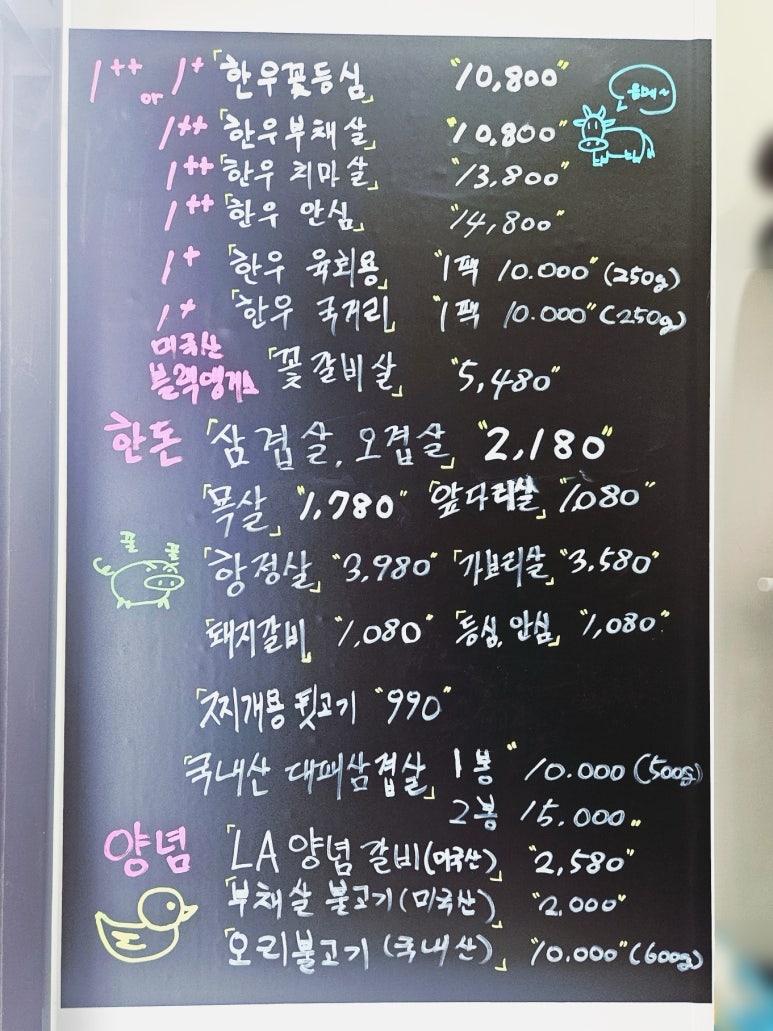 1++ or 1+ 「한우꽃등심」 "10,800"
음메~
1++ 「한우부채살」 "10.800"
1++ 「한우 치마살」 "13.800"
1++ 「한우 안심」 "14,800"
1+ 「한우 육회용」 "1팩 10.000" (250g)
1+ 「한우 국거리」 1팩 10.000" (250g)
미국산
블랙앵거스 「꽃갈비살」 "5,480"
한돈 「삼겹살, 오겹살」 "2,180"
「목살」 "1,780" 「앞다리살」 "1,080"
꿀 꿀
「항정살」 "3,980" 「가브리살」 "3,580"
「돼지갈비」 "1,080" 「등심, 안심」 "1,080"
「찌개용 뒷고기 "990"
「국내산 대패삼겹살」 1봉 " 10.000 (500g)
2봉 15.000 "
양념 「LA양념갈비(미국산)」 "2,580"
「부채살 불고기(미국산)」 "2.000"
「오리불고기 (국내산)」 "10.000" (600g)